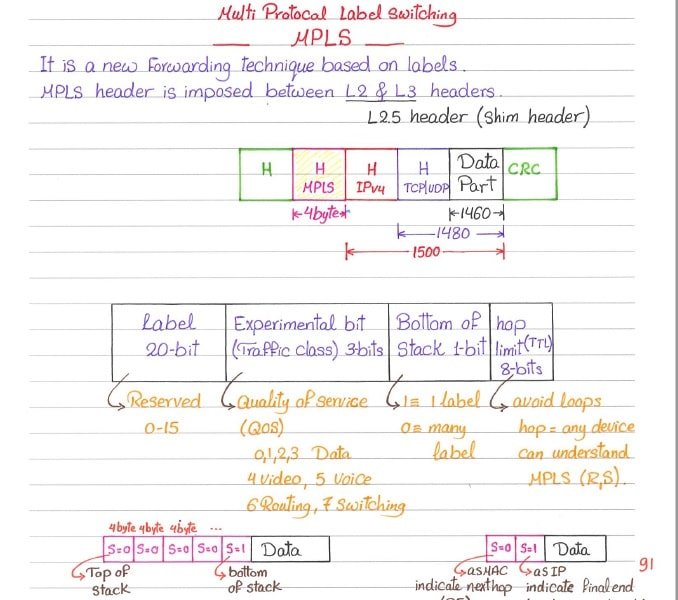 Multi Protocal Label Switching
MPLS
It is a new Forwarding technique based on labels.
MPLS header is imposed between L2 & L3 headers.
L2.5 header (Shim header)
H H H H Data CRC
MPLS IPv4 TCP/UDP Part
4byte 1460
1480
1500
Label Experimental bit Bottom of hop
20-bit (Traffic class) 3-bits Stack 1-bit limit(TTL)
8-bits
Reserved Quality of service 1≡ 1 label avoid loops
0-15 (QOS) 0≡ many hop = any device
0,1,2,3 Data label can understand
4 Video, 5 Voice MPLS (R,S).
6 Routing, 7 Switching
4byte 4byte 4byte ...
S=0 S=0 S=0 S=0 S=1 Data S=0 S=1 Data
91
Top of bottom as MAC as IP
stack of stack indicate nexthop indicate final end